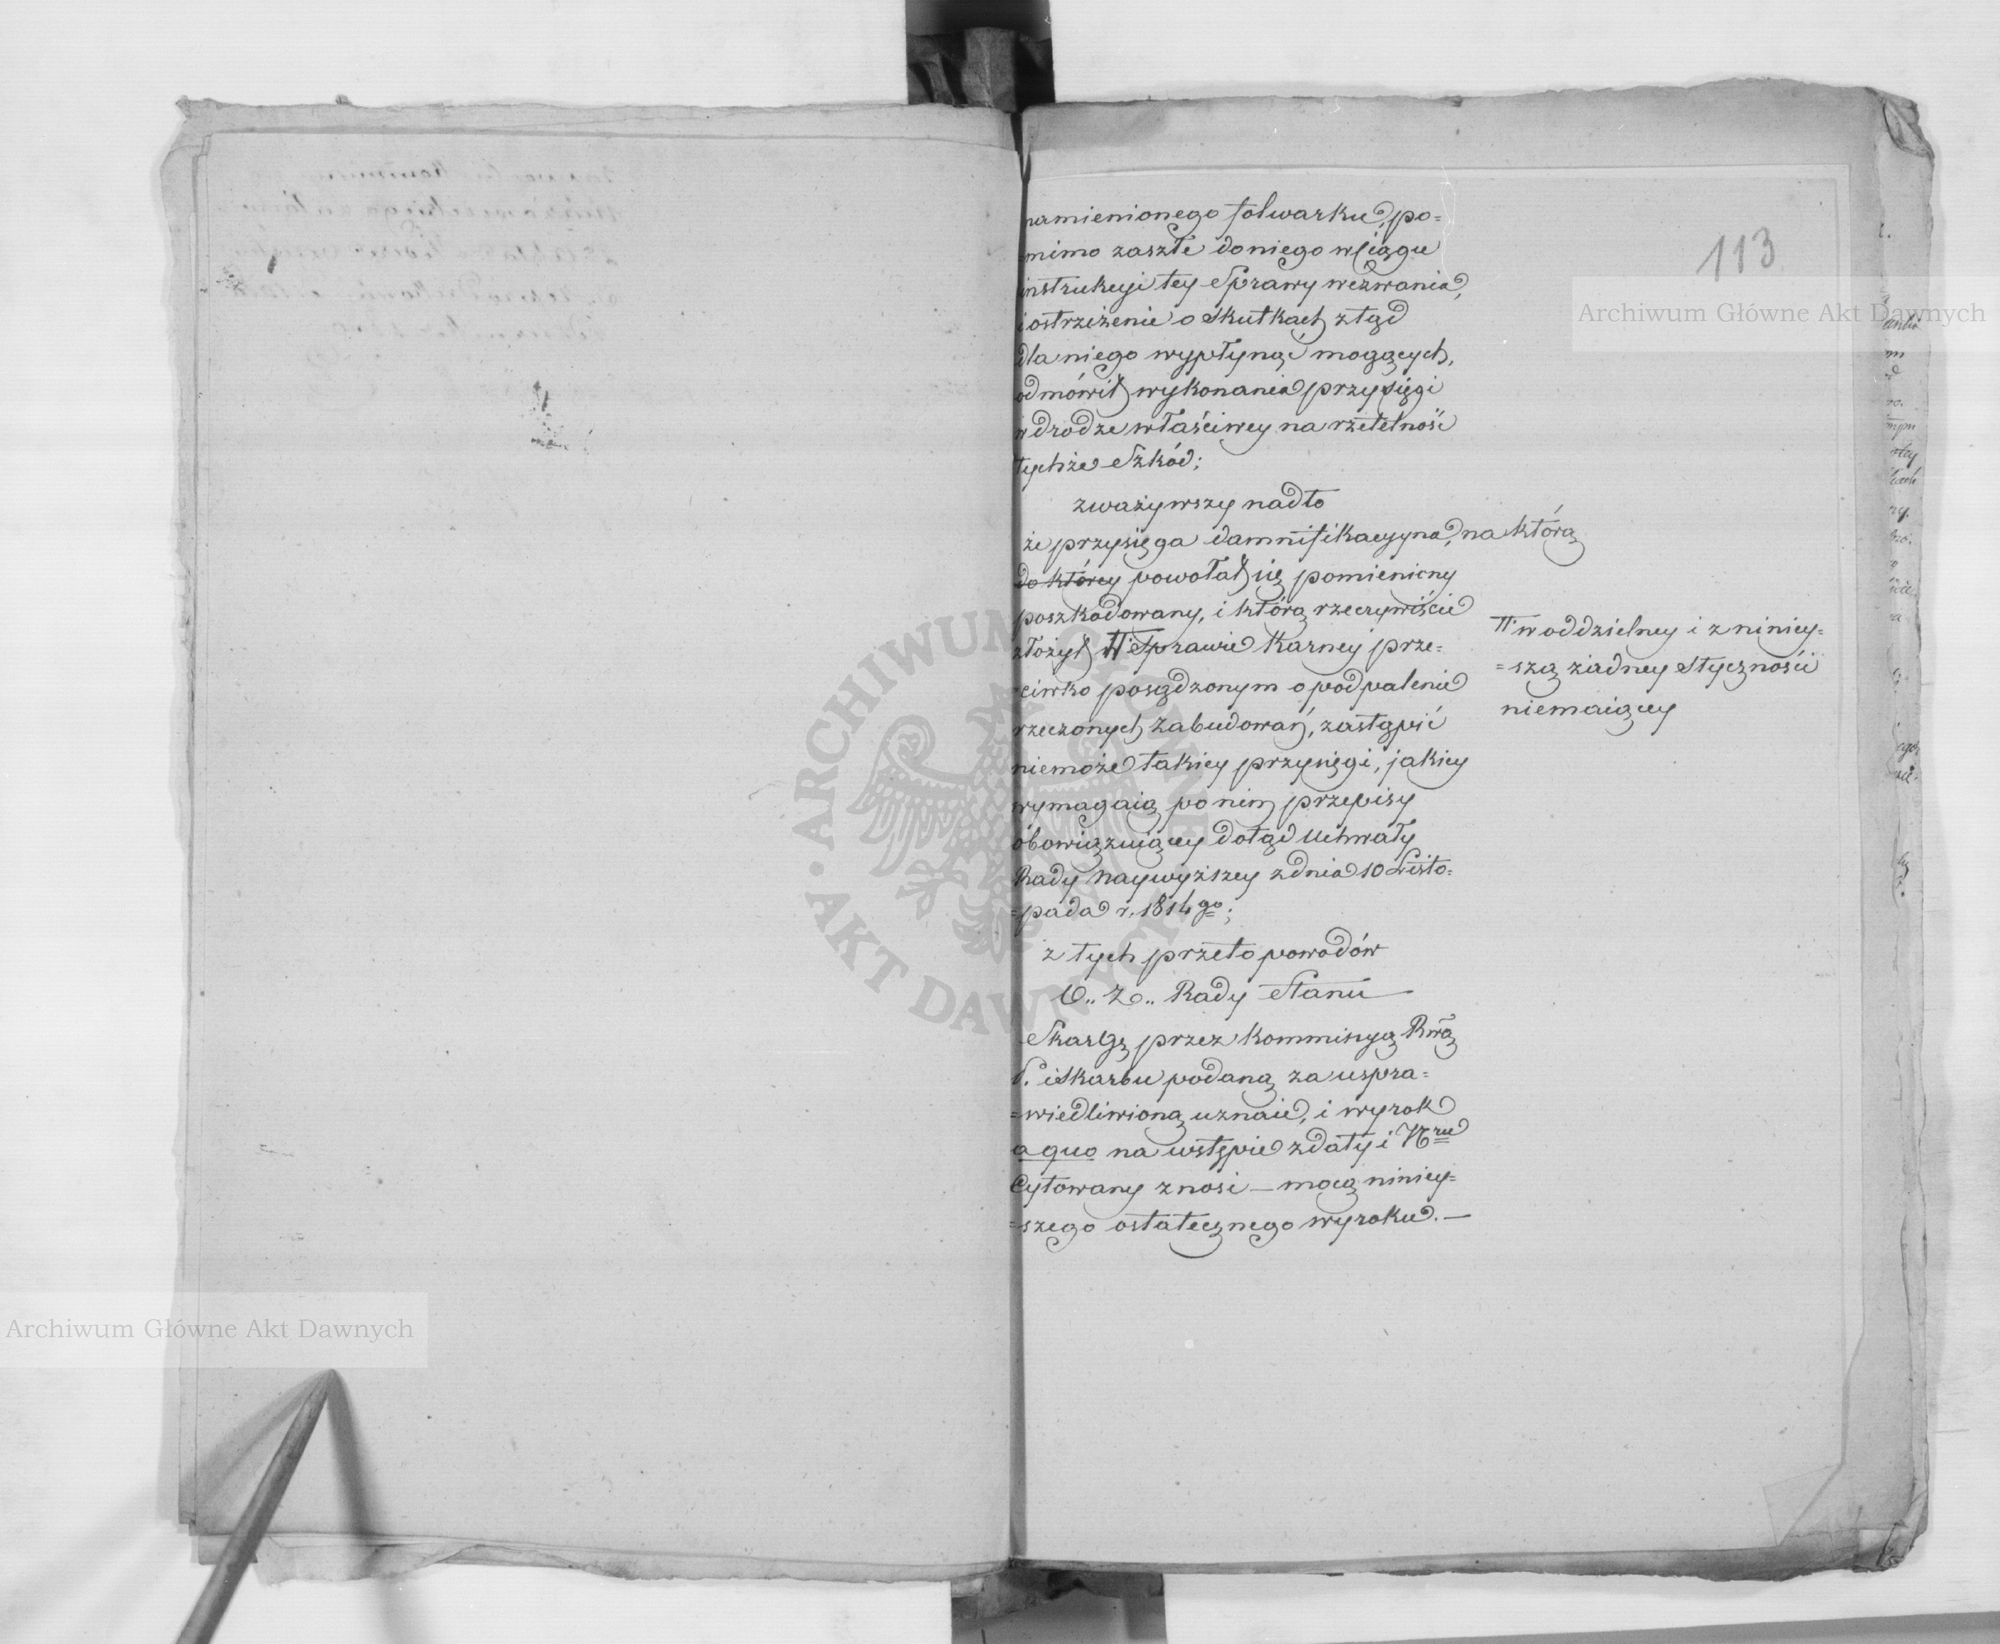 113
namienionego folwarku, po=
mimo zaszłe do niego w ciągu
instrukcyi tey Sprawy wezwania,
i ostrzeżenie o skutkach ztąd
dla niego wypłynąć mogących,
odmówił wykonania przysięgi
w drodze właściwey na rzetelność
tychże Szkód;
zważywszy nadto
że przysięga damnifikacyyna, na którą
do którey powołał się pomieniony
poszkodowany, i którą rzeczywiście
złożył # w Sprawie Karney prze=
=ciwko posądzonym o podpalenie
rzeczonych zabudowań, zastąpić
niemoże takiey przysięgi, jakiey
wymagaią po nim przepisy
obowiązuiącey dotąd Uchwały
Rady Naywyższey z dnia 10 Listo=
=pada r. 1814go;
# w oddzielney i z niniey=
=szą żadney styczności
niemaiącey
z tych przeto powodów
O.. Z.. Rady Stanu
Skargę przez Kommissyą Rwą
P. i Skarbu podaną za uspra=
=wiedliwioną uznaie, i wyrok
a quo na wstępie z daty i Nru
Cytowany znosi — mocą niniey=
=szego ostatecznego wyroku. —
Archiwum Główne Akt Dawnych
Archiwum Główne Akt Dawnych
ARCHIWUM GŁÓWNE AKT DAWNYCH